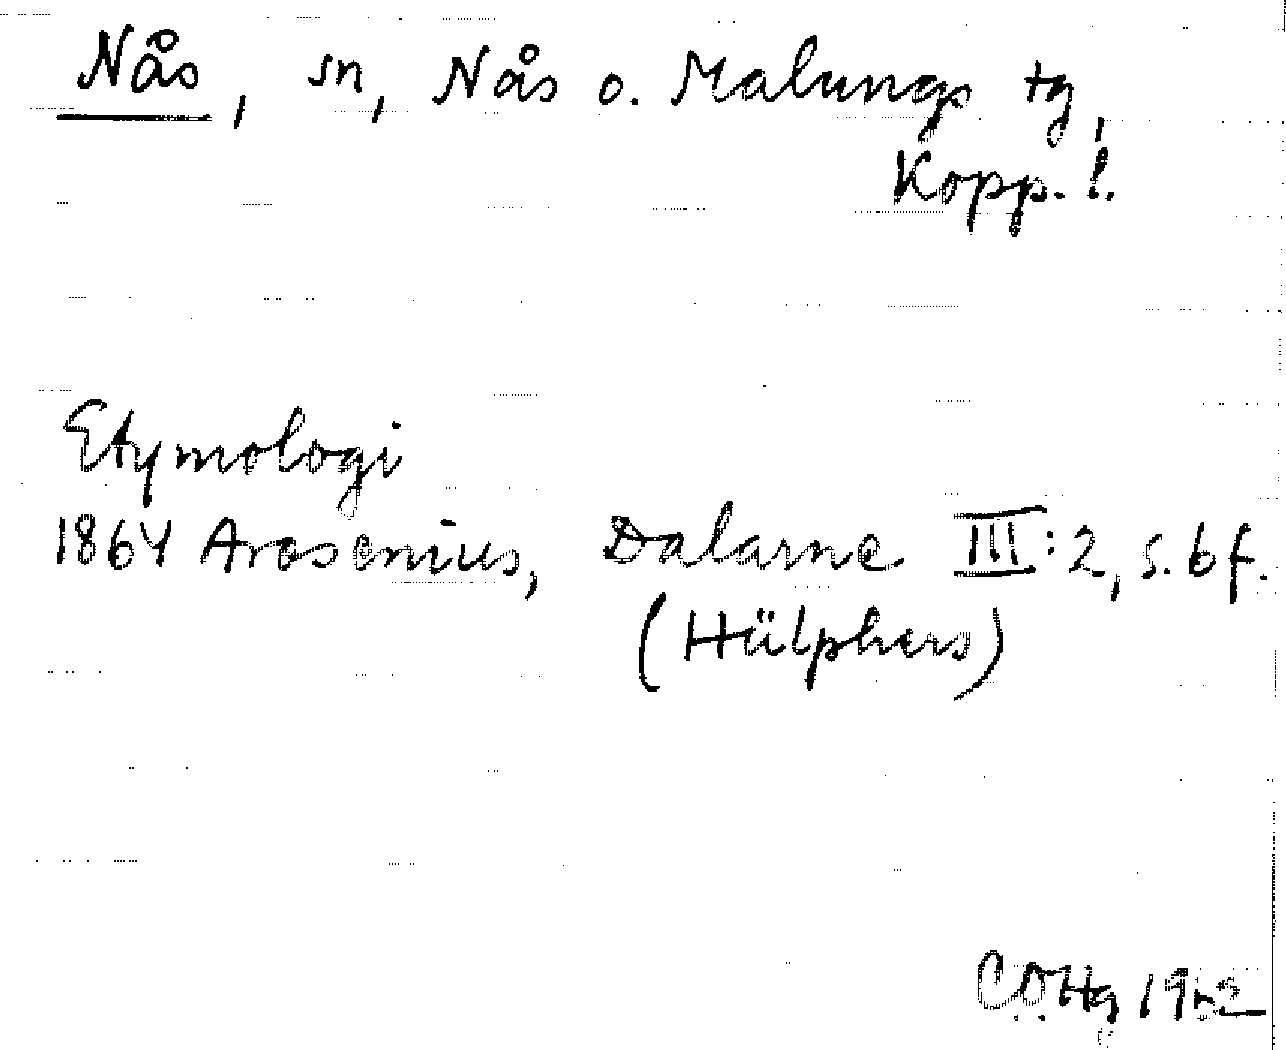 Nås, sn, Nås o. Malungs tg,
Kopp. l.
Etymologi
1864 Arosenius, Dalarne III:2, s. 6 f.
(Hülphers)
COHg